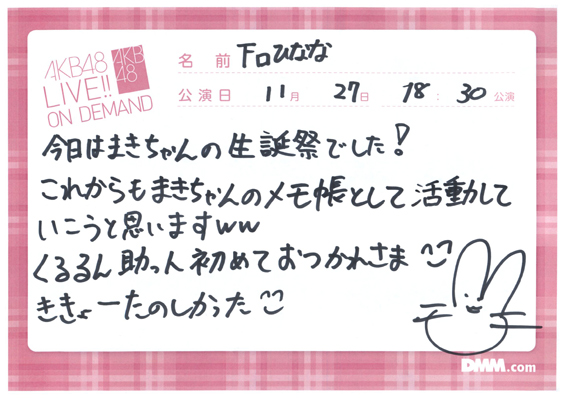 AKB48
LIVE!!
ON DEMAND
AKB
48
名前 下口ひなな
公演日 11月 27日 18:30公演
今日はまきちゃんの生誕祭でした!
これからもまきちゃんのメモ帳として活動して
いこうと思いますww
くるるん助っ人初めておつかれさま
ききょーたのしかった
DMM.com